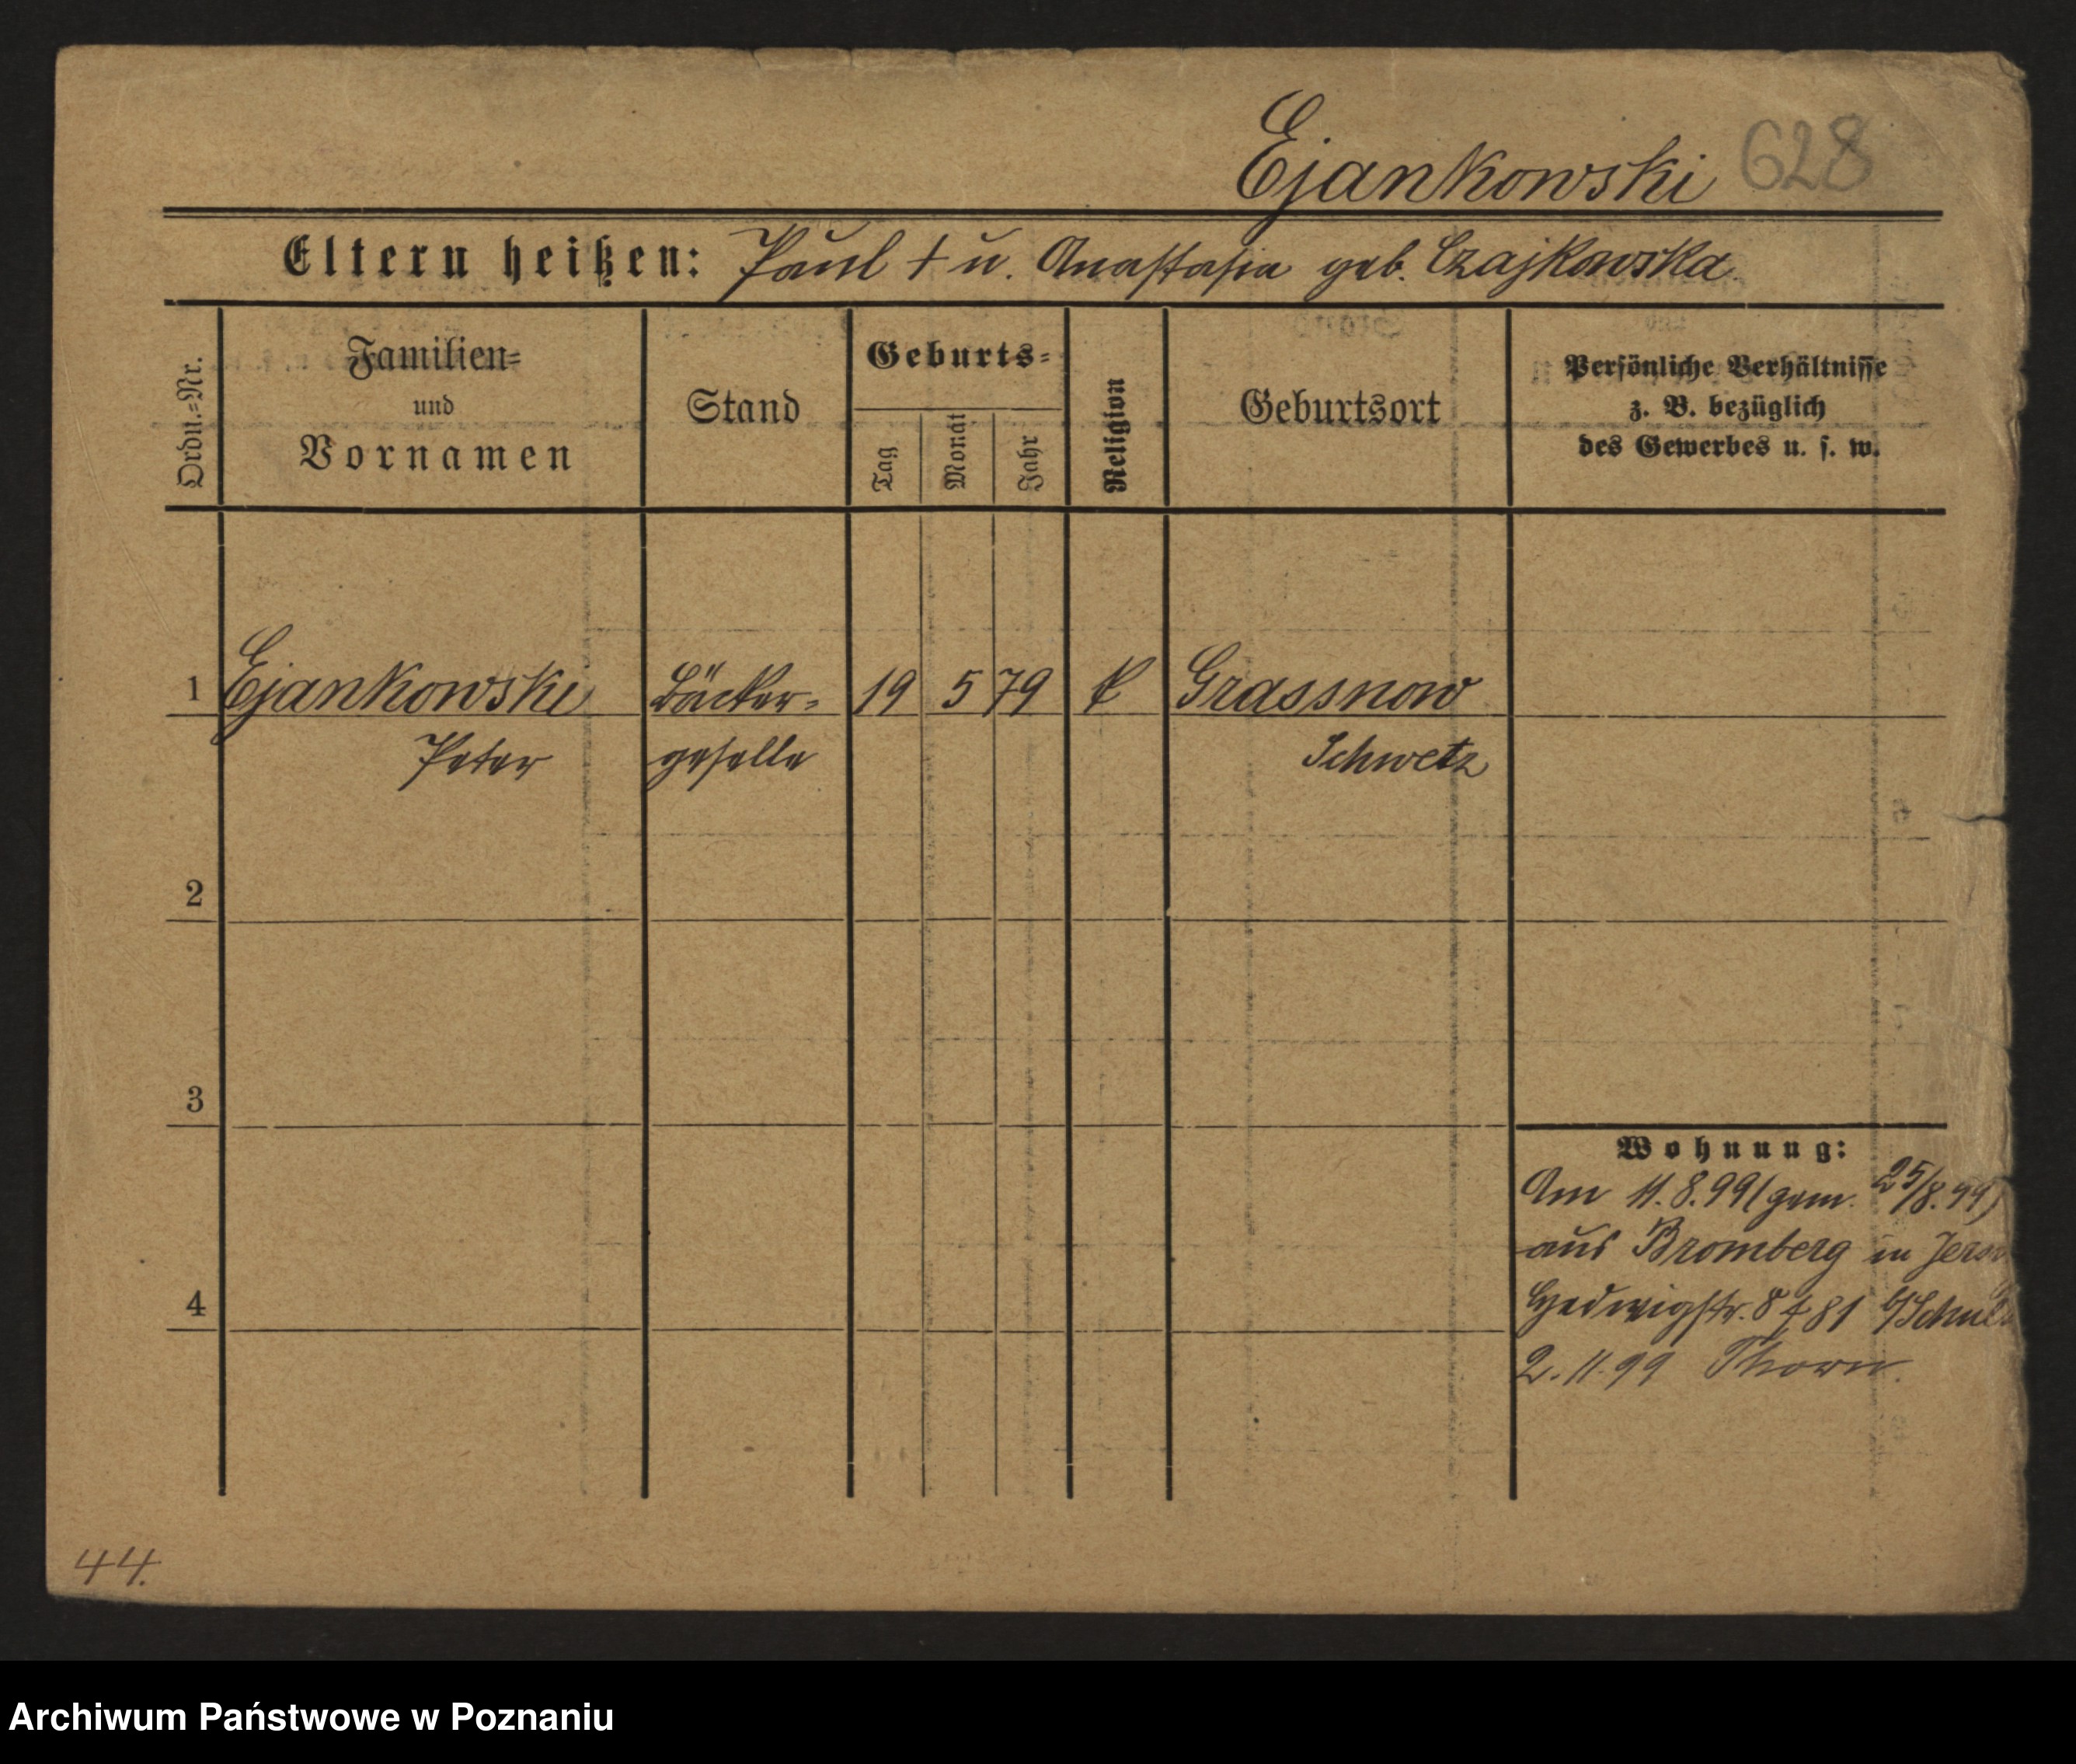 Ejankowski 628
Eltern heißen: Paul † u. Anastasia geb. Czajkowska
Ordn.=Nr.
Familien=
und
Vornamen
Stand
Geburts=
Tag
Monat
Jahr
Religion
Geburtsort
Persönliche Verhältnisse
z. B. bezüglich
des Gewerbes u. s. w.
1 Ejankowski Bäcker= 19 5 79 k Grassnow
Peter geselle Schwetz
2
3
4
Wohnung:
Am 11.8.99 (gem. 25/8.99)
aus Bromberg in
Hedwigstr. 8 81
2.11.99 Thorn.
44.
Archiwum Państwowe w Poznaniu